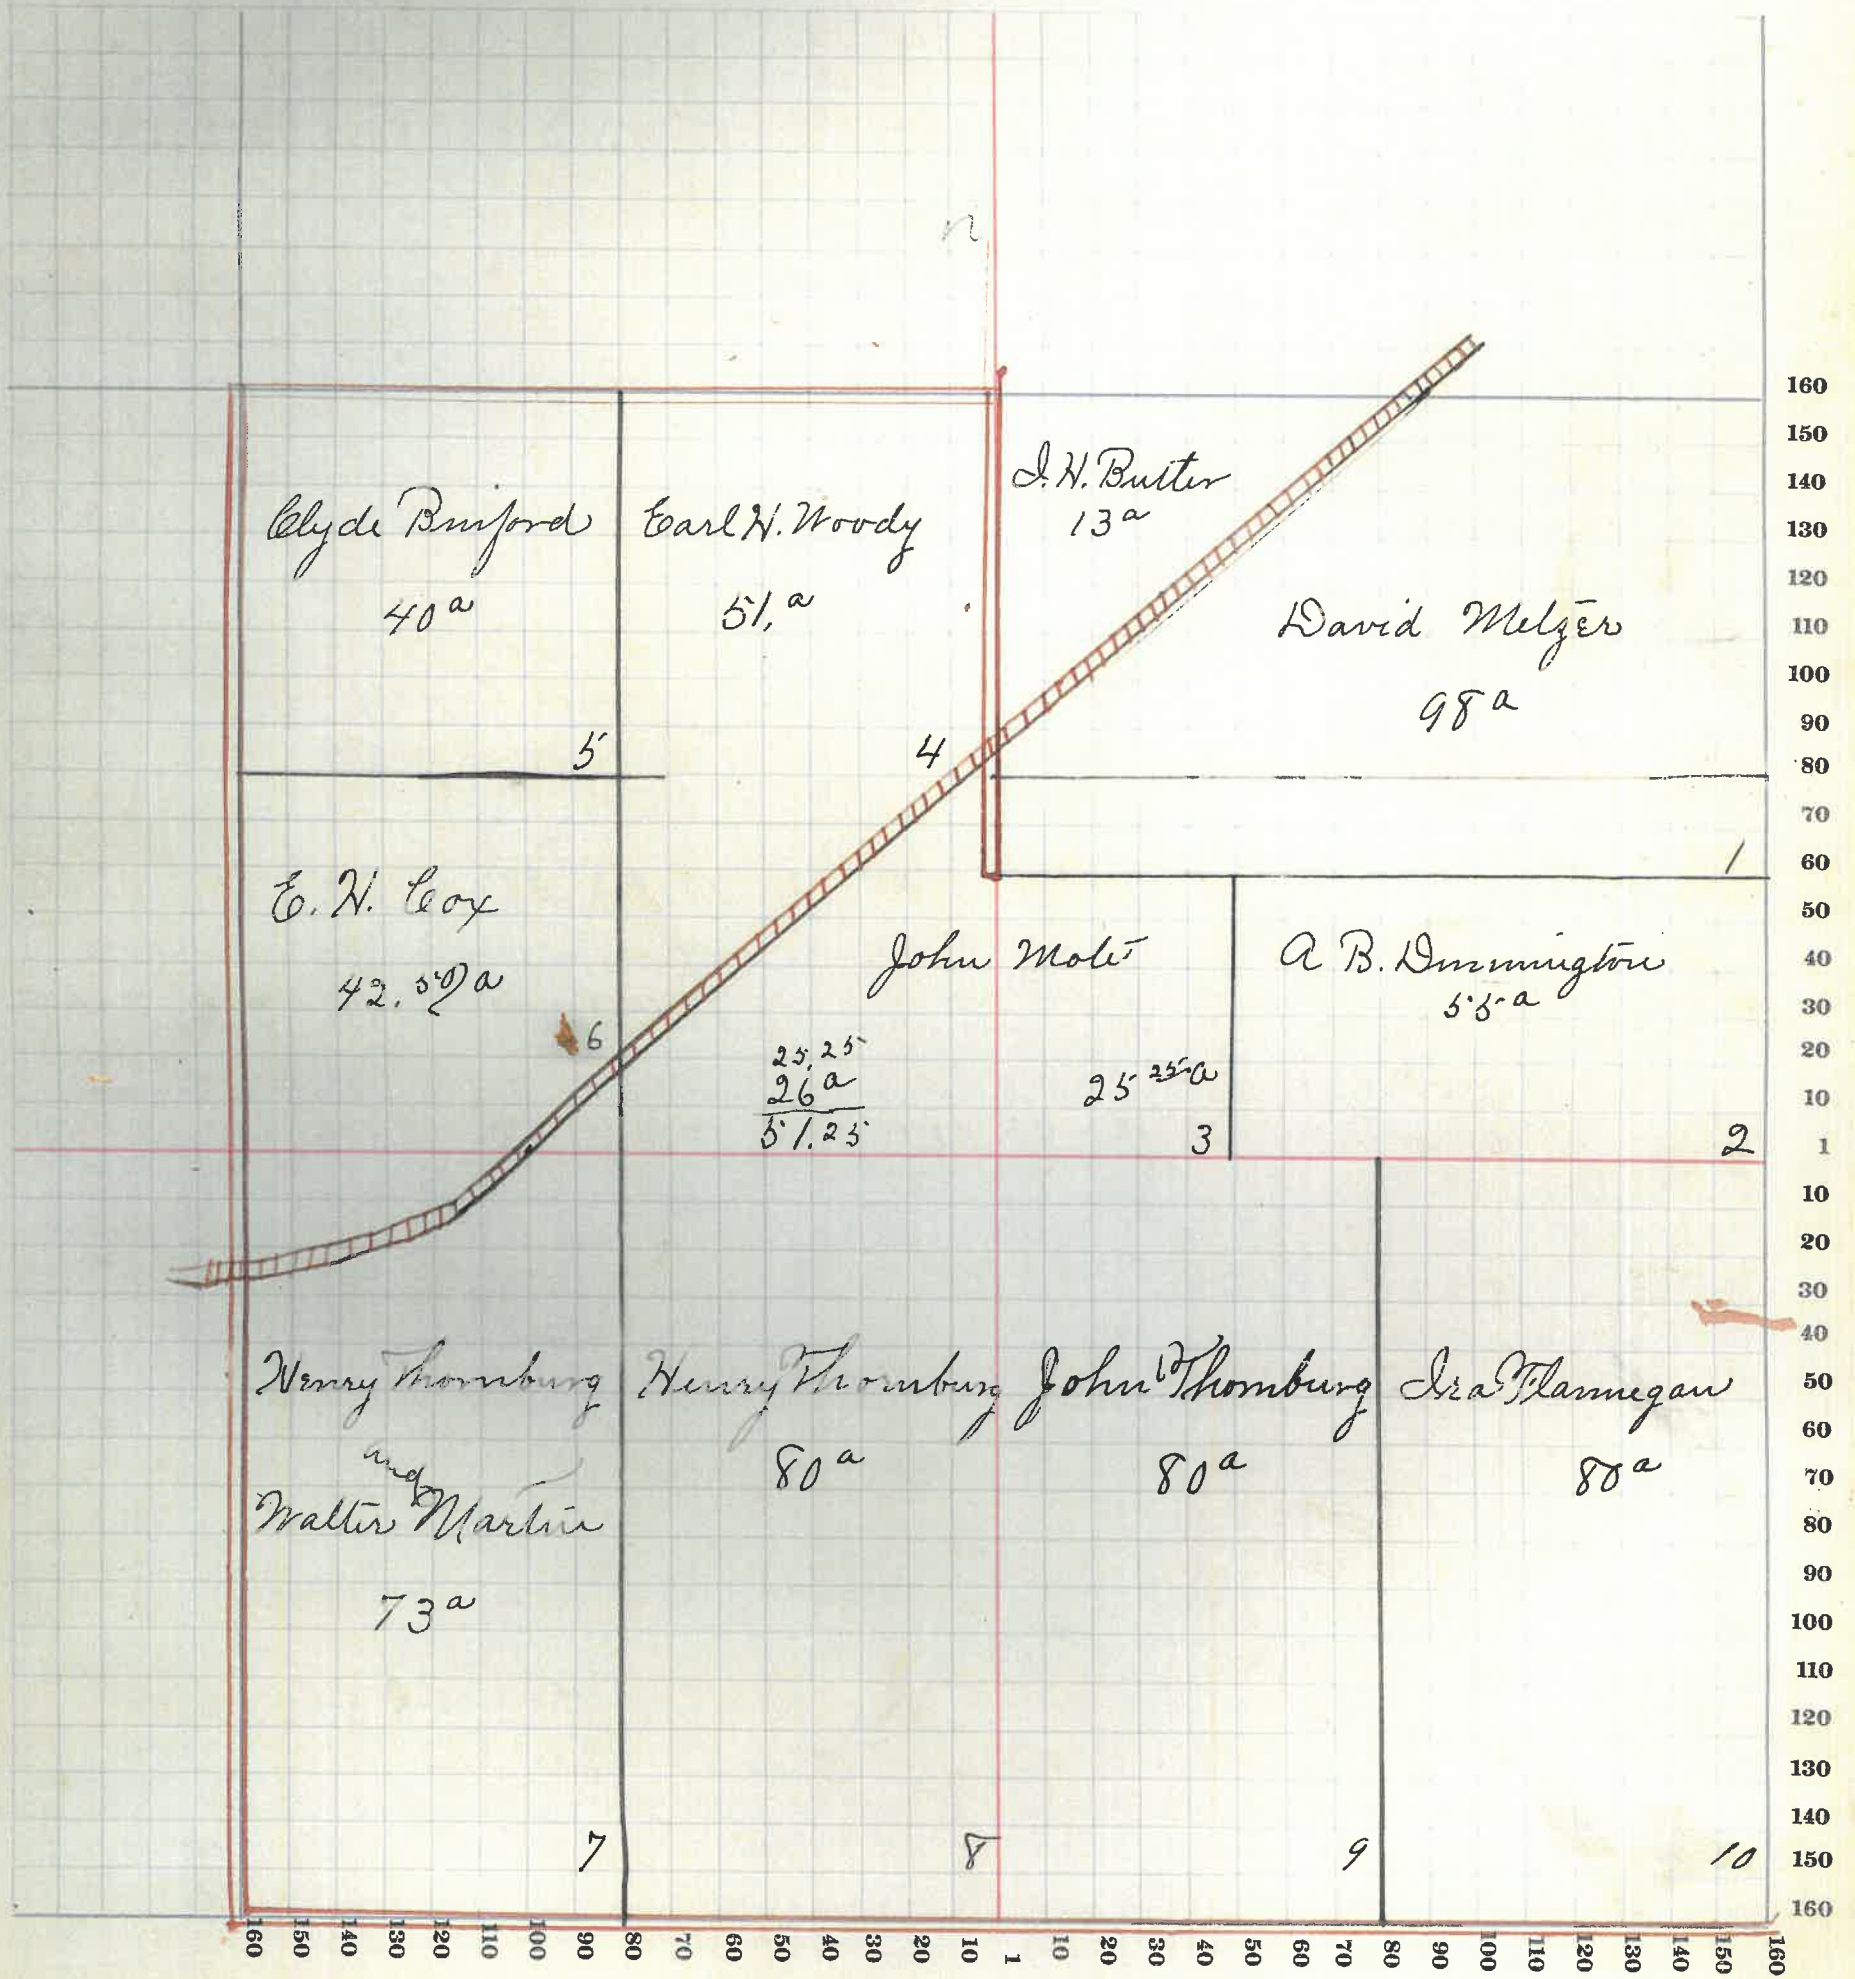 n
Clyde Binford
40 a
5
Earl H. Woody
51, a
4
I. H. Butler
13 a
David Melzer
98 a
1
E. H. Cox
42.50 a
6
John Mote
25.25
26 a
51.25
25 25 a
3
A B. Dunnington
55 a
2
Henry Thornburg
and
Walter Martin
73 a
7
Henry Thornburg
80 a
8
John Thornburg
80 a
9
Ira Flannegan
80 a
10
160
150
140
130
120
110
100
90
80
70
60
50
40
30
20
10
1
10
20
30
40
50
60
70
80
90
100
110
120
130
140
150
160
160 150 140 130 120 110 100 90 80 70 60 50 40 30 20 10 1 10 20 30 40 50 60 70 80 90 100 110 120 130 140 150 160